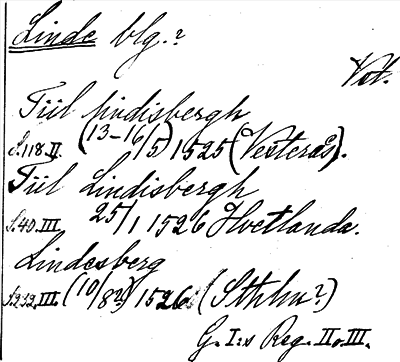 Linde blg.?
Vst.
Tiil lindisbergh
S.118.II. (13-16/5) 1525 (Vesterås).
Tiil Lindisbergh
S.40.III. 25/1 1526 Hvetlanda.
Lindesberg
S.212.III. (10/8?) 1526 (Sthlm?)
G. I:s Reg. II o. III.